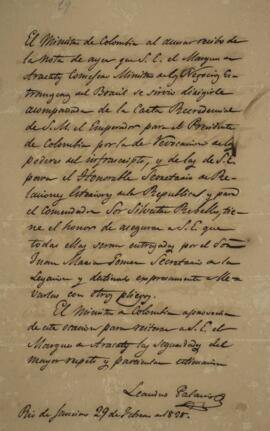 El Ministro de Colombia al acusar recibo de
la nota de ayer que S. E. el Marques de
Aracaty Consejero Ministro de los Negocios Es-
trangeros del Brasil se sirvió dirigirle
acompañada de la Carta Recredencial
de S. M. el Emperador para el Presidente
de Colombia por la de
poderes del infrascripto, y de las de S. E.
para el Honorable Secretario de Re-
laciones Esteriores de la Republica, y para
el Comendador Sor Silvestre Rebello, tie-
ne el honor de asegurar a S. E. que
todas ellas seran entregadas por el Sor
Juan Maria Secretario de la
Legacion y destinado expresamente a lle-
varlas con otros pliegos.
El Ministro de Colombia aprovecha
de esta ocasion para reiterar a S. E. el
Marques de Aracaty las seguridades del
mayor respeto y particular estimacion
Leandro Palacios
Rio de Janeiro 29 de Febrero de 1828.